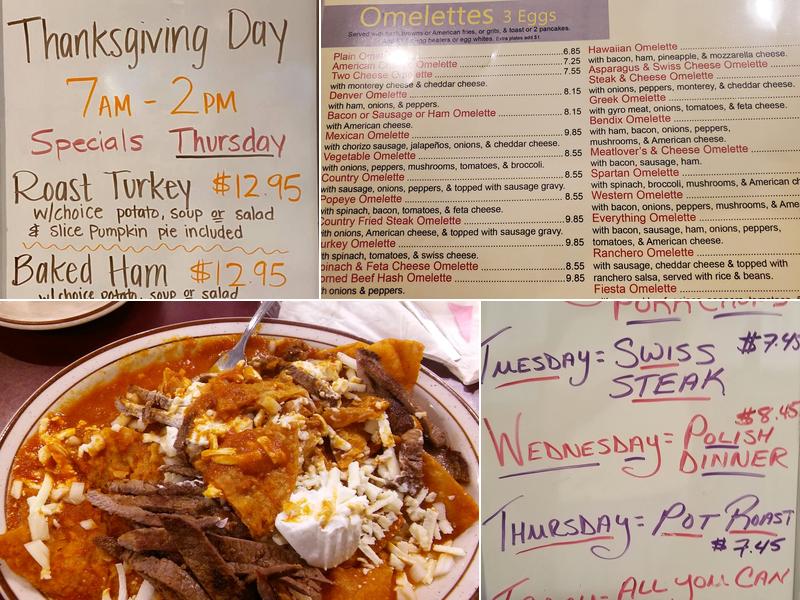 Thanksgiving Day
7AM - 2PM
Specials Thursday
Roast Turkey $12.95
w/choice potato, soup or salad
& slice Pumpkin pie included
Baked Ham $12.95
w/choice potato, soup or salad
Omelettes 3 Eggs
Served with hash browns or American fries, or grits, & toast or 2 pancakes.
egg beaters or egg whites. Extra plates add $1
Plain 6.85
American 7.25
Two Cheese Omelette 7.55
with monterey cheese & cheddar cheese.
Denver Omelette 8.15
with ham, onions, & peppers.
Bacon or Sausage or Ham Omelette 8.15
with American cheese.
Mexican Omelette 9.85
with chorizo sausage, jalapeños, onions, & cheddar cheese.
Vegetable Omelette 8.55
with onions, peppers, mushrooms, tomatoes, & broccoli.
Country Omelette 8.55
with sausage, onions, peppers, & topped with sausage gravy.
Popeye Omelette 8.55
with spinach, bacon, tomatoes, & feta cheese.
Country Fried Steak Omelette 9.85
with onions, American cheese, & topped with sausage gravy.
urkey Omelette 9.85
ith spinach, tomatoes, & swiss cheese.
pinach & Feta Cheese Omelette 8.55
orned Beef Hash Omelette 9.85
th onions & peppers.
Hawaiian Omelette
with bacon, ham, pineapple, & mozzarella cheese.
Asparagus & Swiss Cheese Omelette
Steak & Cheese Omelette
with onions, peppers, monterey, & cheddar cheese.
Greek Omelette
with gyro meat, onions, tomatoes, & feta cheese.
Bendix Omelette
with ham, bacon, onions, peppers,
mushrooms, & American cheese.
Meatlover's & Cheese Omelette
with bacon, sausage, ham.
Spartan Omelette
with spinach, broccoli, mushrooms, & American ch
Western Omelette
with bacon, onions, peppers, mushrooms, & Ame
Everything Omelette
with bacon, sausage, ham, onions, peppers,
tomatoes, & American cheese.
Ranchero Omelette
with sausage, cheddar cheese & topped with
ranchero salsa, served with rice & beans.
Fiesta Omelette
PORK CHOPS
TUESDAY = SWISS STEAK $7.45
WEDNESDAY = POLISH DINNER $8.45
THURSDAY = POT ROAST $7.45
ALL YOU CAN